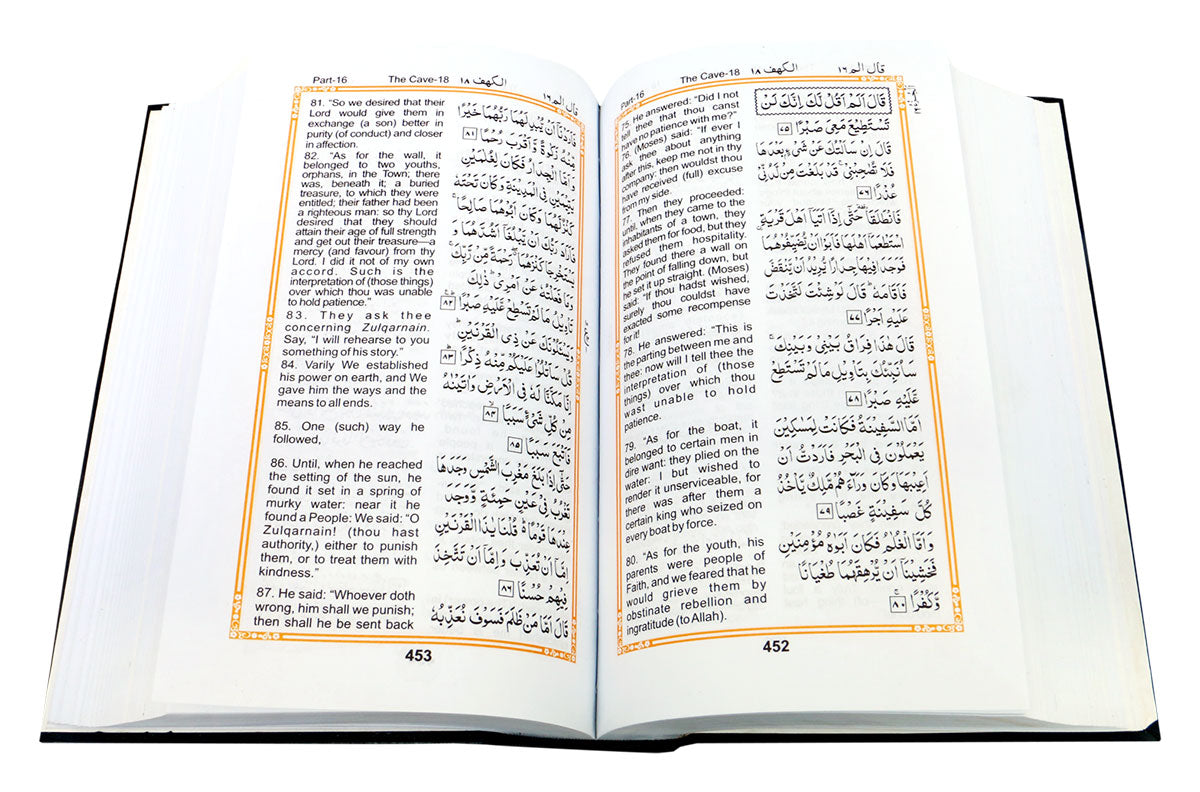 Part-16 The Cave-18 الكهف ١٨ قال الم ١٦
75. He answered: “Did I not
tell thee that thou canst
have no patience with me?”
76. (Moses) said: “If ever I
ask thee about anything
after this, keep me not in thy
company: then wouldst thou
have received (full) excuse
from my side.
77. Then they proceeded:
until, when they came to the
inhabitants of a town, they
asked them for food, but they
refused them hospitality.
They found there a wall on
the point of falling down, but
he set it up straight. (Moses)
said: “If thou hadst wished,
surely thou couldst have
exacted some recompense
for it!
78. He answered: “This is
the parting between me and
thee: now will I tell thee the
interpretation of (those
things) over which thou
wast unable to hold
patience.
79. “As for the boat, it
belonged to certain men in
dire want: they plied on the
water: I but wished to
render it unserviceable, for
there was after them a
certain king who seized on
every boat by force.
80. “As for the youth, his
parents were people of
Faith, and we feared that he
would grieve them by
obstinate rebellion and
ingratitude (to Allah).
قَالَ اَلَمْ اَقُلْ لَّكَ اِنَّكَ لَنْ
تَسْتَطِيْعَ مَعِيَ صَبْرًا ٧٥
قَالَ اِنْ سَاَلْتُكَ عَنْ شَيْءٍۢ بَعْدَهَا
فَلَا تُصٰحِبْنِيْ ۚ قَدْ بَلَغْتَ مِنْ لَّدُنِّيْ
عُذْرًا ٧٦
فَانْطَلَقَا ۥ حَتّٰۤى اِذَاۤ اَتَيَاۤ اَهْلَ قَرْيَةِ ۨ
اسْتَطْعَمَاۤ اَهْلَهَا فَاَبَوْا اَنْ يُّضَيِّفُوْهُمَا
فَوَجَدَا فِيْهَا جِدَارًا يُّرِيْدُ اَنْ يَّنْقَضَّ
فَاَقَامَهٗ ؕ قَالَ لَوْ شِئْتَ لَتَّخَذْتَ
عَلَيْهِ اَجْرًا ٧٧
قَالَ هٰذَا فِرَاقُ بَيْنِيْ وَبَيْنِكَ ۚ
سَاُنَبِّئُكَ بِتَاْوِيْلِ مَا لَمْ تَسْتَطِعْ
عَّلَيْهِ صَبْرًا ٧٨
اَمَّا السَّفِيْنَةُ فَكَانَتْ لِمَسٰكِيْنَ
يَعْمَلُوْنَ فِي الْبَحْرِ فَاَرَدْتُّ اَنْ
اَعِيْبَهَا وَكَانَ وَرَآءَهُمْ مَّلِكٌ يَّاْخُذُ
كُلَّ سَفِيْنَةٍ غَصْبًا ٧٩
وَاَمَّا الْغُلٰمُ فَكَانَ اَبَوٰهُ مُؤْمِنَيْنِ
فَخَشِيْنَاۤ اَنْ يُّرْهِقَهُمَا طُغْيَانًا
وَّكُفْرًا ٨٠
452
Part-16 The Cave-18 الكهف ١٨ قال الم ١٦
81. “So we desired that their
Lord would give them in
exchange (a son) better in
purity (of conduct) and closer
in affection.
82. “As for the wall, it
belonged to two youths,
orphans, in the Town; there
was, beneath it; a buried
treasure, to which they were
entitled; their father had been
a righteous man: so thy Lord
desired that they should
attain their age of full strength
and get out their treasure—a
mercy (and favour) from thy
Lord. I did it not of my own
accord. Such is the
interpretation of (those things)
over which thou was unable
to hold patience.”
83. They ask thee
concerning Zulqarnain.
Say, “I will rehearse to you
something of his story.”
84. Varily We established
his power on earth, and We
gave him the ways and the
means to all ends.
85. One (such) way he
followed,
86. Until, when he reached
the setting of the sun, he
found it set in a spring of
murky water: near it he
found a People: We said: “O
Zulqarnain! (thou hast
authority,) either to punish
them, or to treat them with
kindness.”
87. He said: “Whoever doth
wrong, him shall we punish;
then shall he be sent back
فَاَرَدْنَاۤ اَنْ يُّبْدِلَهُمَا رَبُّهُمَا خَيْرًا
مِّنْهُ زَكٰوةً وَّاَقْرَبَ رُحْمًا ٨١
وَاَمَّا الْجِدَارُ فَكَانَ لِغُلٰمَيْنِ
يَتِيْمَيْنِ فِي الْمَدِيْنَةِ وَكَانَ تَحْتَهٗ
كَنْزٌ لَّهُمَا وَكَانَ اَبُوْهُمَا صَالِحًا ۚ
فَاَرَادَ رَبُّكَ اَنْ يَّبْلُغَاۤ اَشُدَّهُمَا وَ
يَسْتَخْرِجَا كَنْزَهُمَا ۖ رَحْمَةً مِّنْ رَّبِّكَ ۚ
وَمَا فَعَلْتُهٗ عَنْ اَمْرِيْ ؕ ذٰلِكَ
تَاْوِيْلُ مَا لَمْ تَسْطِعْ عَّلَيْهِ صَبْرًا ٨٢
وَيَسْـَٔلُوْنَكَ عَنْ ذِي الْقَرْنَيْنِ ؕ
قُلْ سَاَتْلُوْا عَلَيْكُمْ مِّنْهُ ذِكْرًا ٨٣
اِنَّا مَكَّنَّا لَهٗ فِي الْاَرْضِ وَاٰتَيْنٰهُ
مِنْ كُلِّ شَيْءٍ سَبَبًا ٨٤
فَاَتْبَعَ سَبَبًا ٨٥
حَتّٰۤى اِذَا بَلَغَ مَغْرِبَ الشَّمْسِ وَجَدَهَا
تَغْرُبُ فِيْ عَيْنٍ حَمِئَةٍ وَّوَجَدَ
عِنْدَهَا قَوْمًا ؕ قُلْنَا يٰذَا الْقَرْنَيْنِ
اِمَّاۤ اَنْ تُعَذِّبَ وَاِمَّاۤ اَنْ تَتَّخِذَ
فِيْهِمْ حُسْنًا ٨٦
قَالَ اَمَّا مَنْ ظَلَمَ فَسَوْفَ نُعَذِّبُهٗ
453